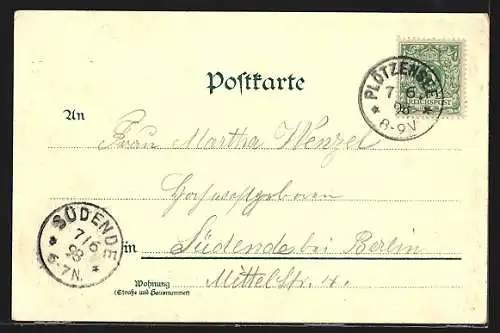 Postkarte
PLÖTZENSEE
7 6
98
8-9V
REICHSPOST
An
Frau Martha Wenzel
Hochwohlgeboren
in Südende bei Berlin
Mittelstr. 4.
Wohnung
(Straße und Hausnummer)
SÜDENDE
7/6
98
6-7N.